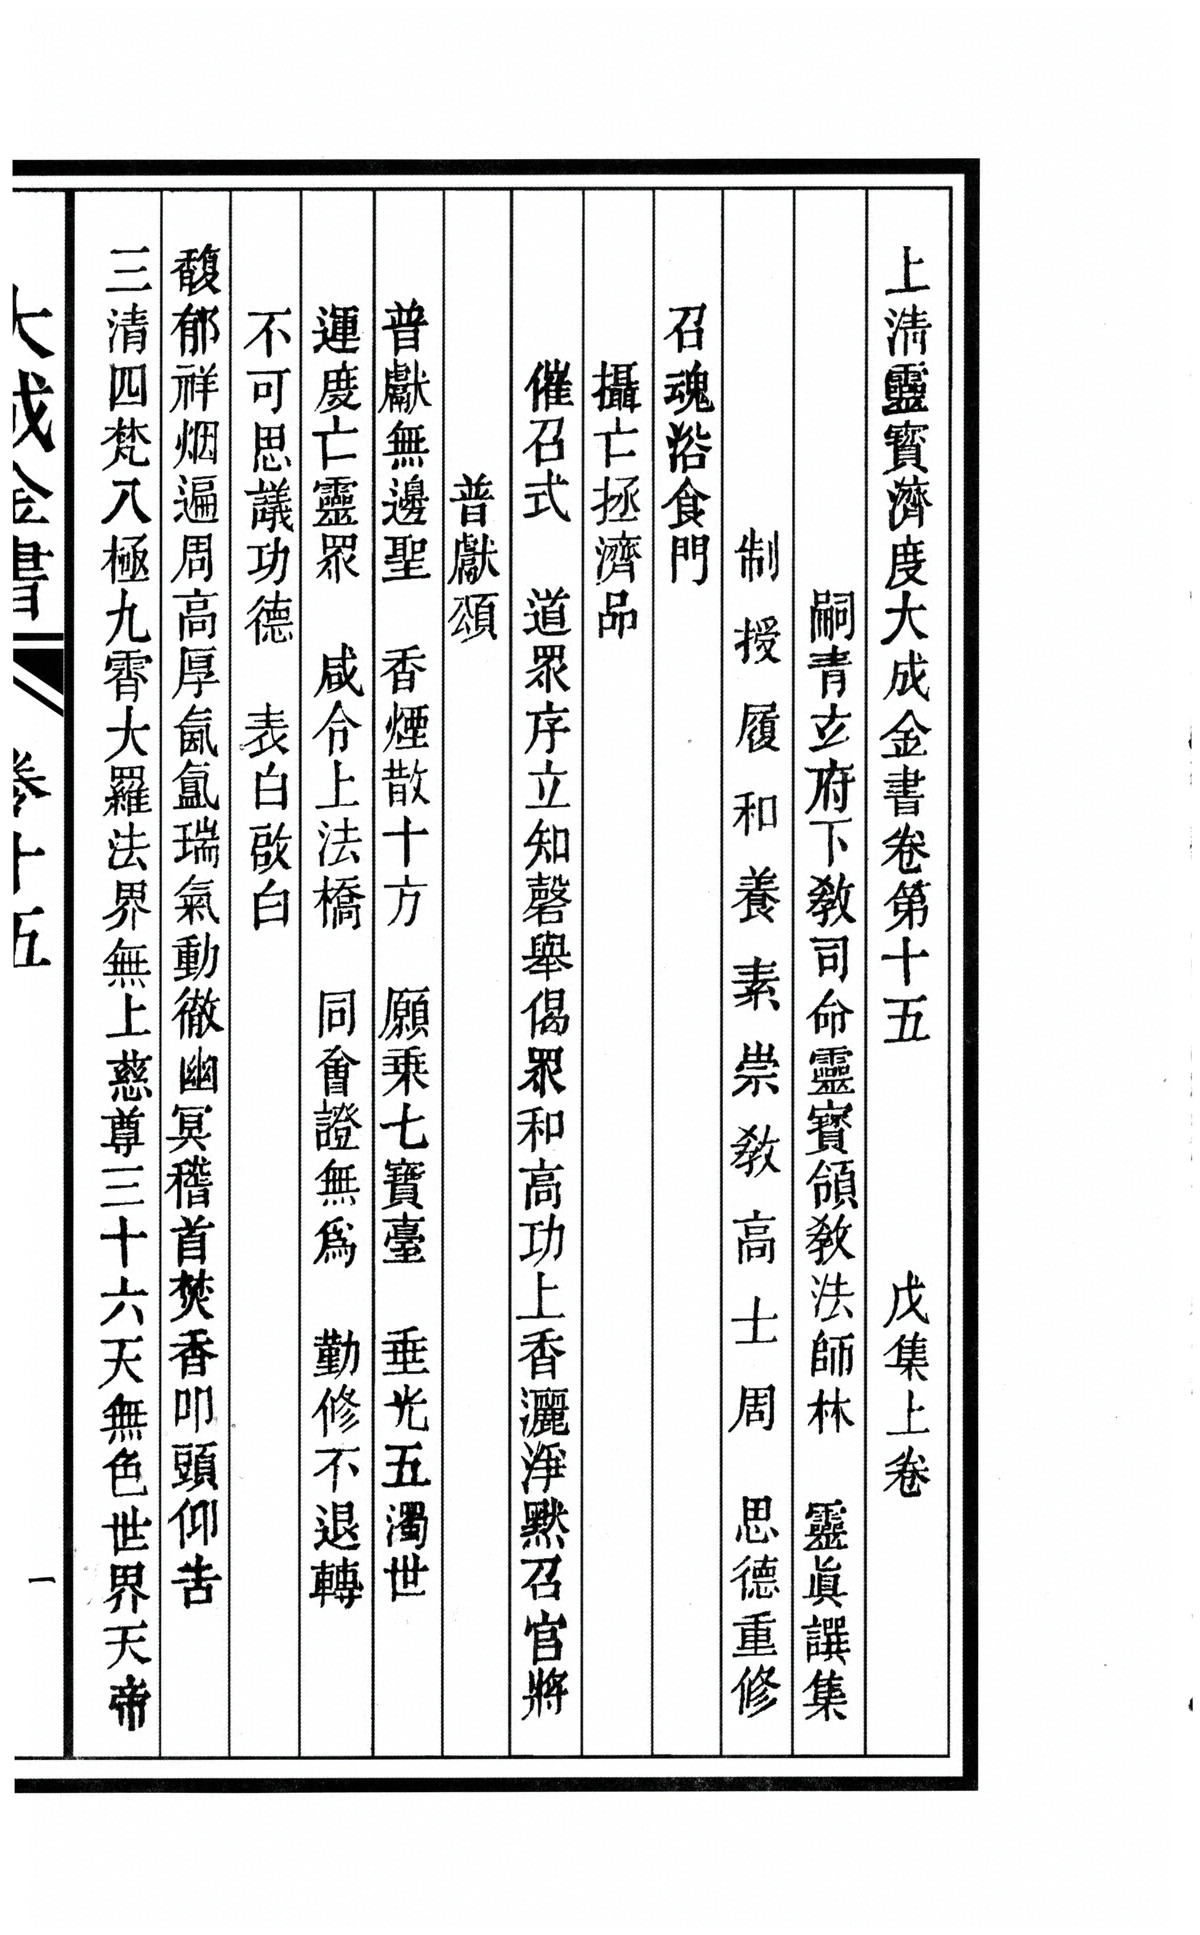 上清靈寳濟度大成金書卷第十五　戊集上卷
嗣青玄府下教司命靈寳領教法師林　靈眞譔集
制授履和養素崇教高士周　思德重修
召魂浴食門
攝亡拯濟品
催召式　道眾序立知磬舉偈眾和高功上香灑淨默召官將
普獻頌
普獻無邊聖　香煙散十方　願乗七寳臺　垂光五濁世
運度亡靈眾　咸令上法橋　同會證無爲　勤修不退轉
不可思議功德　表白啟白
馥郁祥烟遍周高厚氤氳瑞氣動徹幽冥稽首焚香叩頭仰告
三清四梵八極九霄大羅法界無上慈尊三十六天無色世界天帝
大成金書　卷十五　一